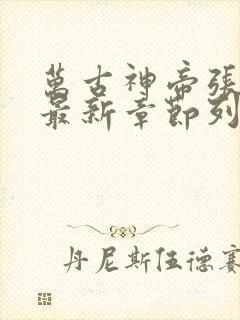 萬古神帝張
最新章節列
丹尼斯伍德賽